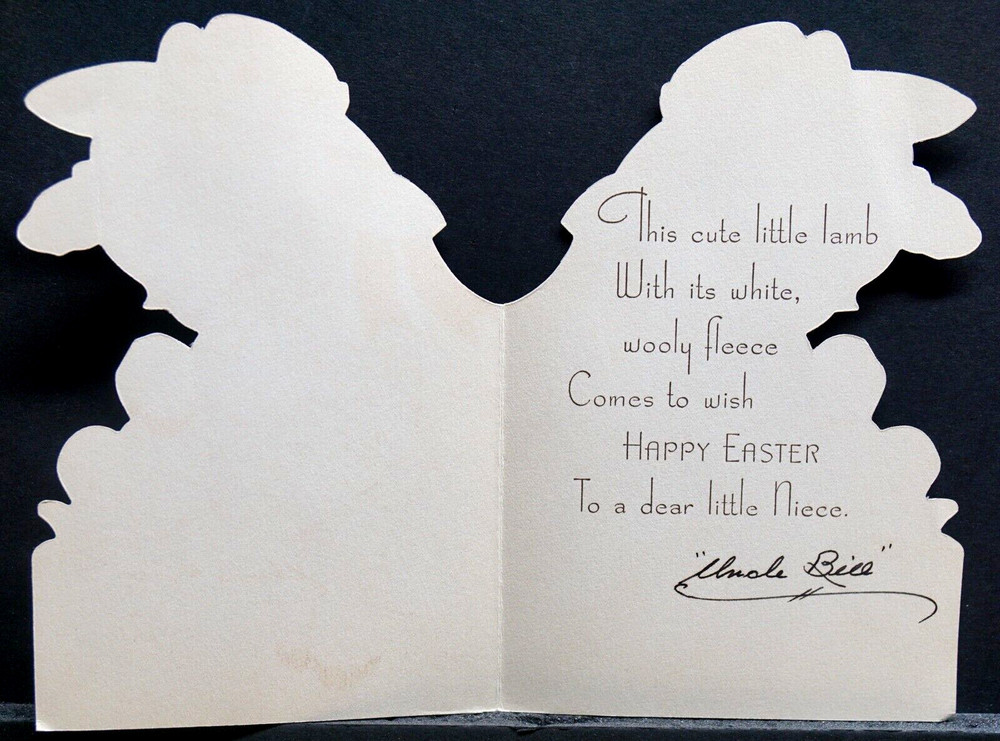 This cute little lamb
With its white,
wooly fleece
Comes to wish
HAPPY EASTER
To a dear little Niece.
"Uncle Bill"